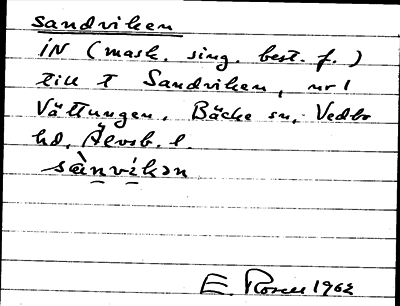 Sandviken
iN (mask. sing. best. f.)
till t Sandviken, nr 1
Vättungen, Bäcke sn, Vedbo
hd, Älvsb. l.
sànvikən
E. Rosén 1962